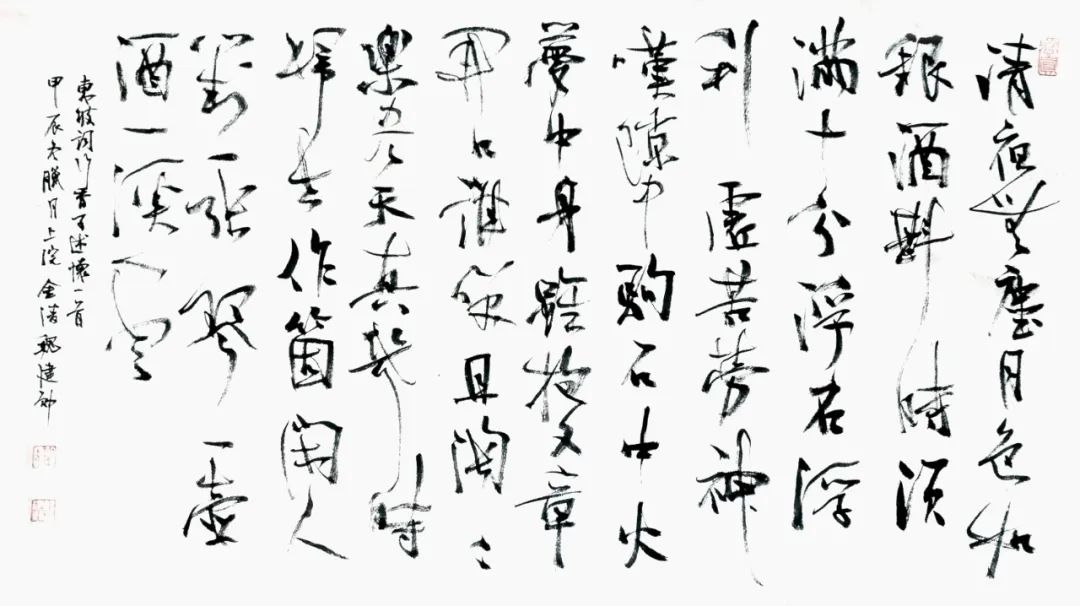 清夜無塵月色如
銀酒斟時須
滿十分浮名浮
利虛苦勞神
嘆隙中駒石中火
夢中身雖抱文章
開口誰親且陶々
樂盡天真幾時
歸去作箇閑人
對一張琴一壺
酒一溪雲
東坡詞行香子述懷一首
甲辰冬臘月上浣金魏健